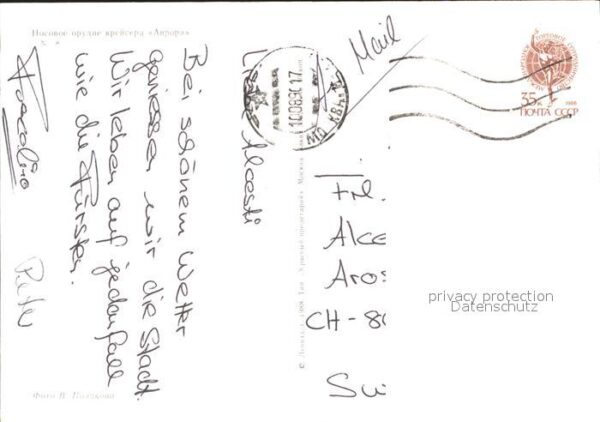 Носовое орудие крейсера «Аврора»
Liebe Alcesti
Bei schönem Wetter
geniessen wir die Stadt.
Wir leben auf jedenfall
wie die Fürsten.
Carolina
Peter
Фото В. Полякова
© Лениздат, 1988
Mail
100890 17
35 к
1988
ПОЧТА СССР
Frl.
Alce
Aros
CH-80
Swi
privacy protection
Datenschutz